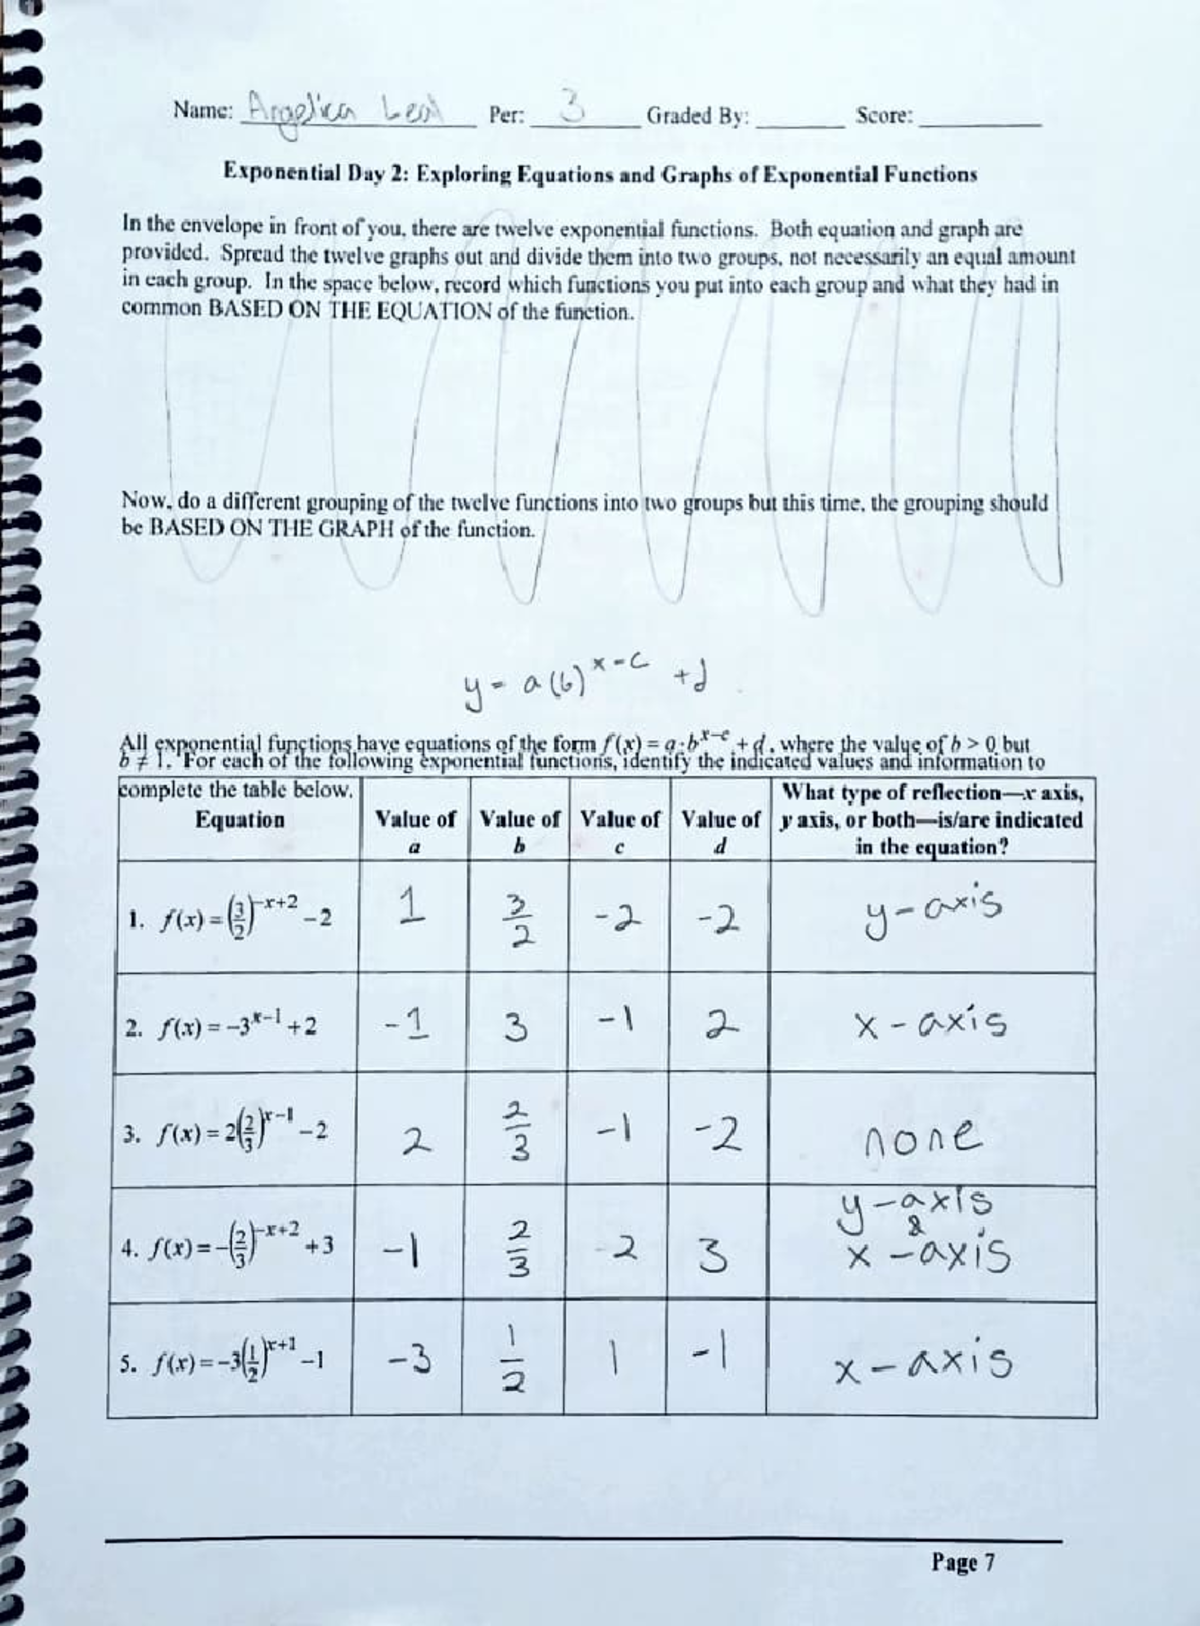 Name: Angelica Leal Per: 3 Graded By: Score:
Exponential Day 2: Exploring Equations and Graphs of Exponential Functions
In the envelope in front of you, there are twelve exponential functions. Both equation and graph are
provided. Spread the twelve graphs out and divide them into two groups, not necessarily an equal amount
in each group. In the space below, record which functions you put into each group and what they had in
common BASED ON THE EQUATION of the function.
Now, do a different grouping of the twelve functions into two groups but this time, the grouping should
be BASED ON THE GRAPH of the function.
y = a(b)^{x-c} +d
All exponential functions have equations of the form f(x) = a·b^{x-c} + d, where the value of b > 0 but
b ≠ 1. For each of the following exponential functions, identify the indicated values and information to
complete the table below.
Equation
Value of a
Value of b
Value of c
Value of d
What type of reflection—x axis,
y axis, or both—is/are indicated
in the equation?
1. f(x) = (3/2)^{-x+2} – 2 1 3/2 -2 -2 y-axis
2. f(x) = –3^{x–1} + 2 -1 3 -1 2 x-axis
3. f(x) = 2(2/3)^{x–1} – 2 2 2/3 -1 -2 none
4. f(x) = –(2/3)^{-x+2} + 3 -1 2/3 2 3 y-axis & x-axis
5. f(x) = –3(1/2)^{x+1} – 1 -3 1/2 1 -1 x-axis
Page 7